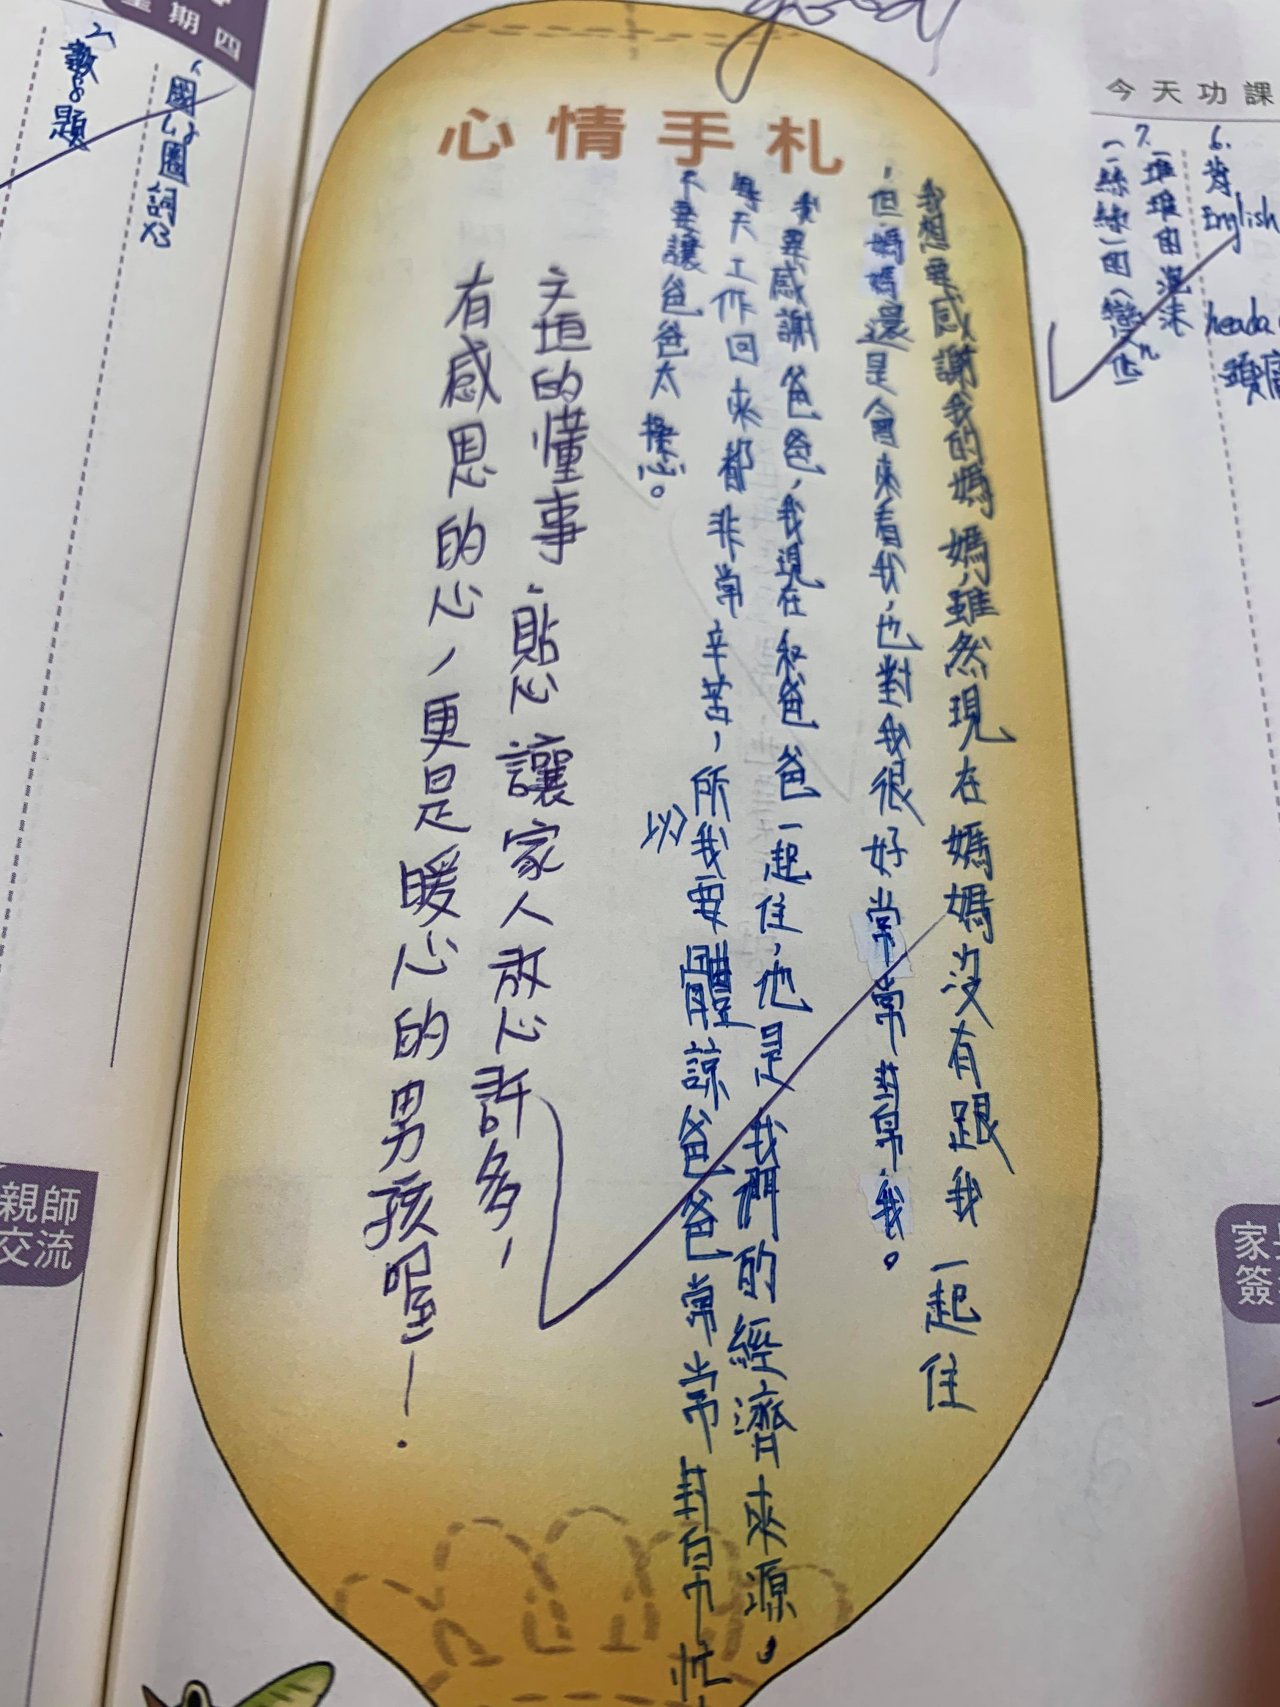 good
心情手札
我想要感謝我的媽媽,雖然現在媽媽沒有跟我一起住
,但媽媽還是會來看我,也對我很好常常幫我。
我要感謝爸爸,我現在和爸爸一起住,他是我們的經濟來源,
每天工作回來都非常辛苦,所以我要體諒爸爸常常幫忙,
不要讓爸爸太操心。
文垣的懂事、貼心讓家人放心許多,
有感恩的心,更是暖心的男孩喔!
今天功課
6.背English
heada
頭痛
7.一堆堆由泥沫
(一絲絲一由(戀
星期四
、國L8圈詞x3
2、數88題
親師
交流
家長
簽